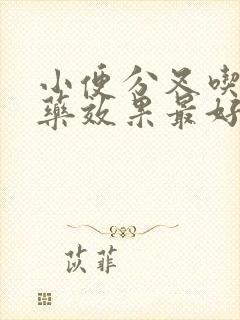 小便分叉喫
藥效果最好
苡菲